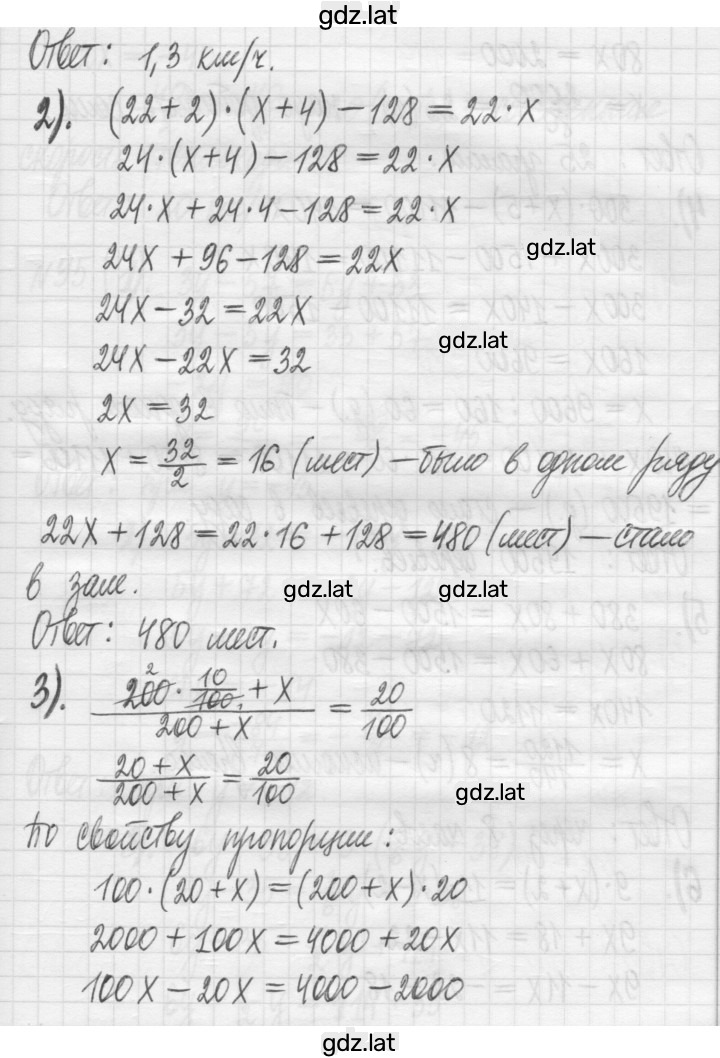 gdz.lat
Ответ: 1,3 км/ч.
2). (22+2)·(x+4)-128=22·x
24·(x+4)-128=22·x
24·x+24·4-128=22·x
24x+96-128=22x
gdz.lat
24x-32=22x
gdz.lat
24x-22x=32
2x=32
x=32/2=16 (мест) - было в одном ряду
22x+128=22·16+128=480 (мест) - стало
в зале.
gdz.lat gdz.lat
Ответ: 480 мест.
3). (200·10/100+x)/(200+x)=20/100
(20+x)/(200+x)=20/100
gdz.lat
По свойству пропорции:
100·(20+x)=(200+x)·20
2000+100x=4000+20x
100x-20x=4000-2000
gdz.lat